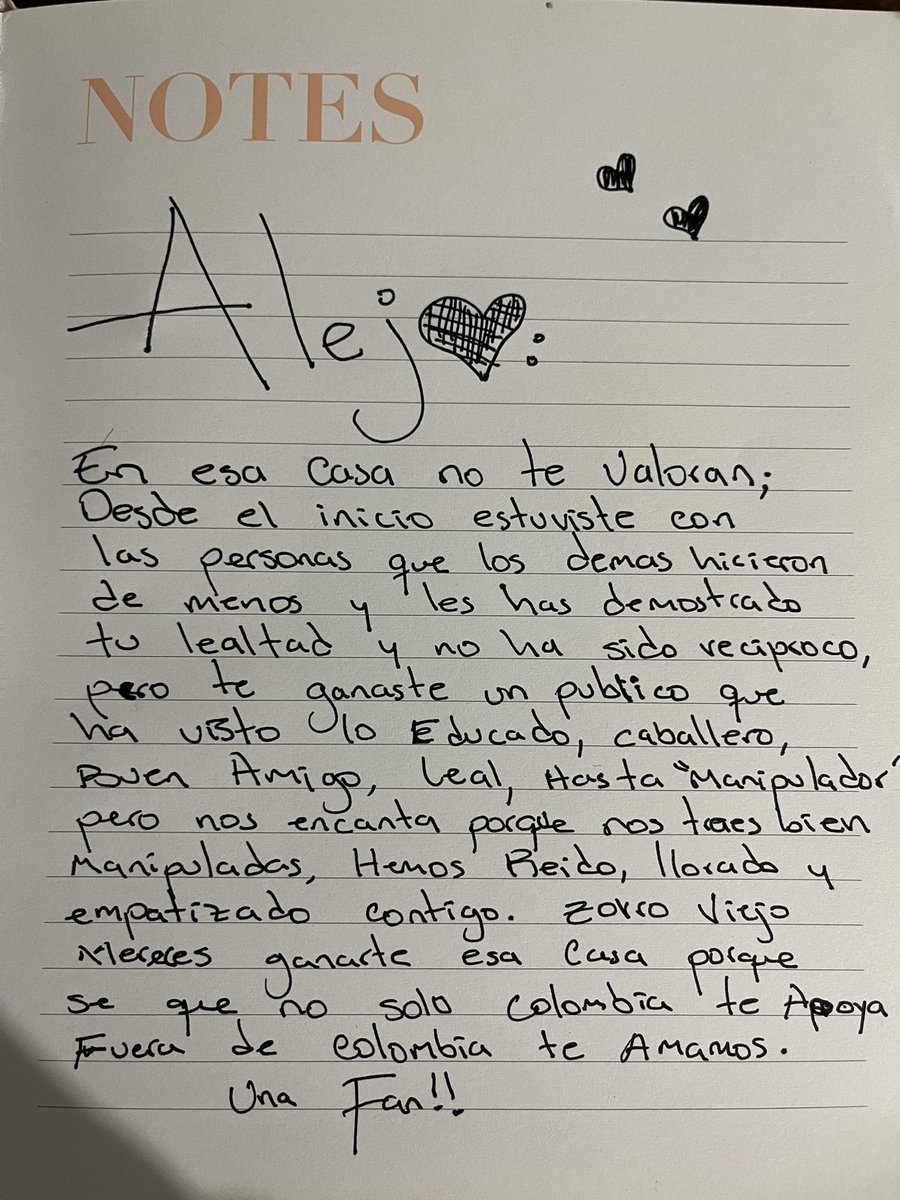 NOTES
Alej♥:
En esa Casa no te Valoran;
Desde el inicio estuviste con
las personas que los demas hicieron
de menos y les has demostrado
tu lealtad y no ha sido reciproco,
pero te ganaste un publico que
ha visto lo Educado, caballero,
Buen Amigo, Leal, Hasta "Manipulador"
pero nos encanta porque nos traes bien
Manipuladas, Hemos Reido, llorado y
empatizado contigo. Zorro Viejo
Mereces ganarte esa Casa porque
se que no solo Colombia te Apoya
Fuera de Colombia te Amamos.
Una Fan!!